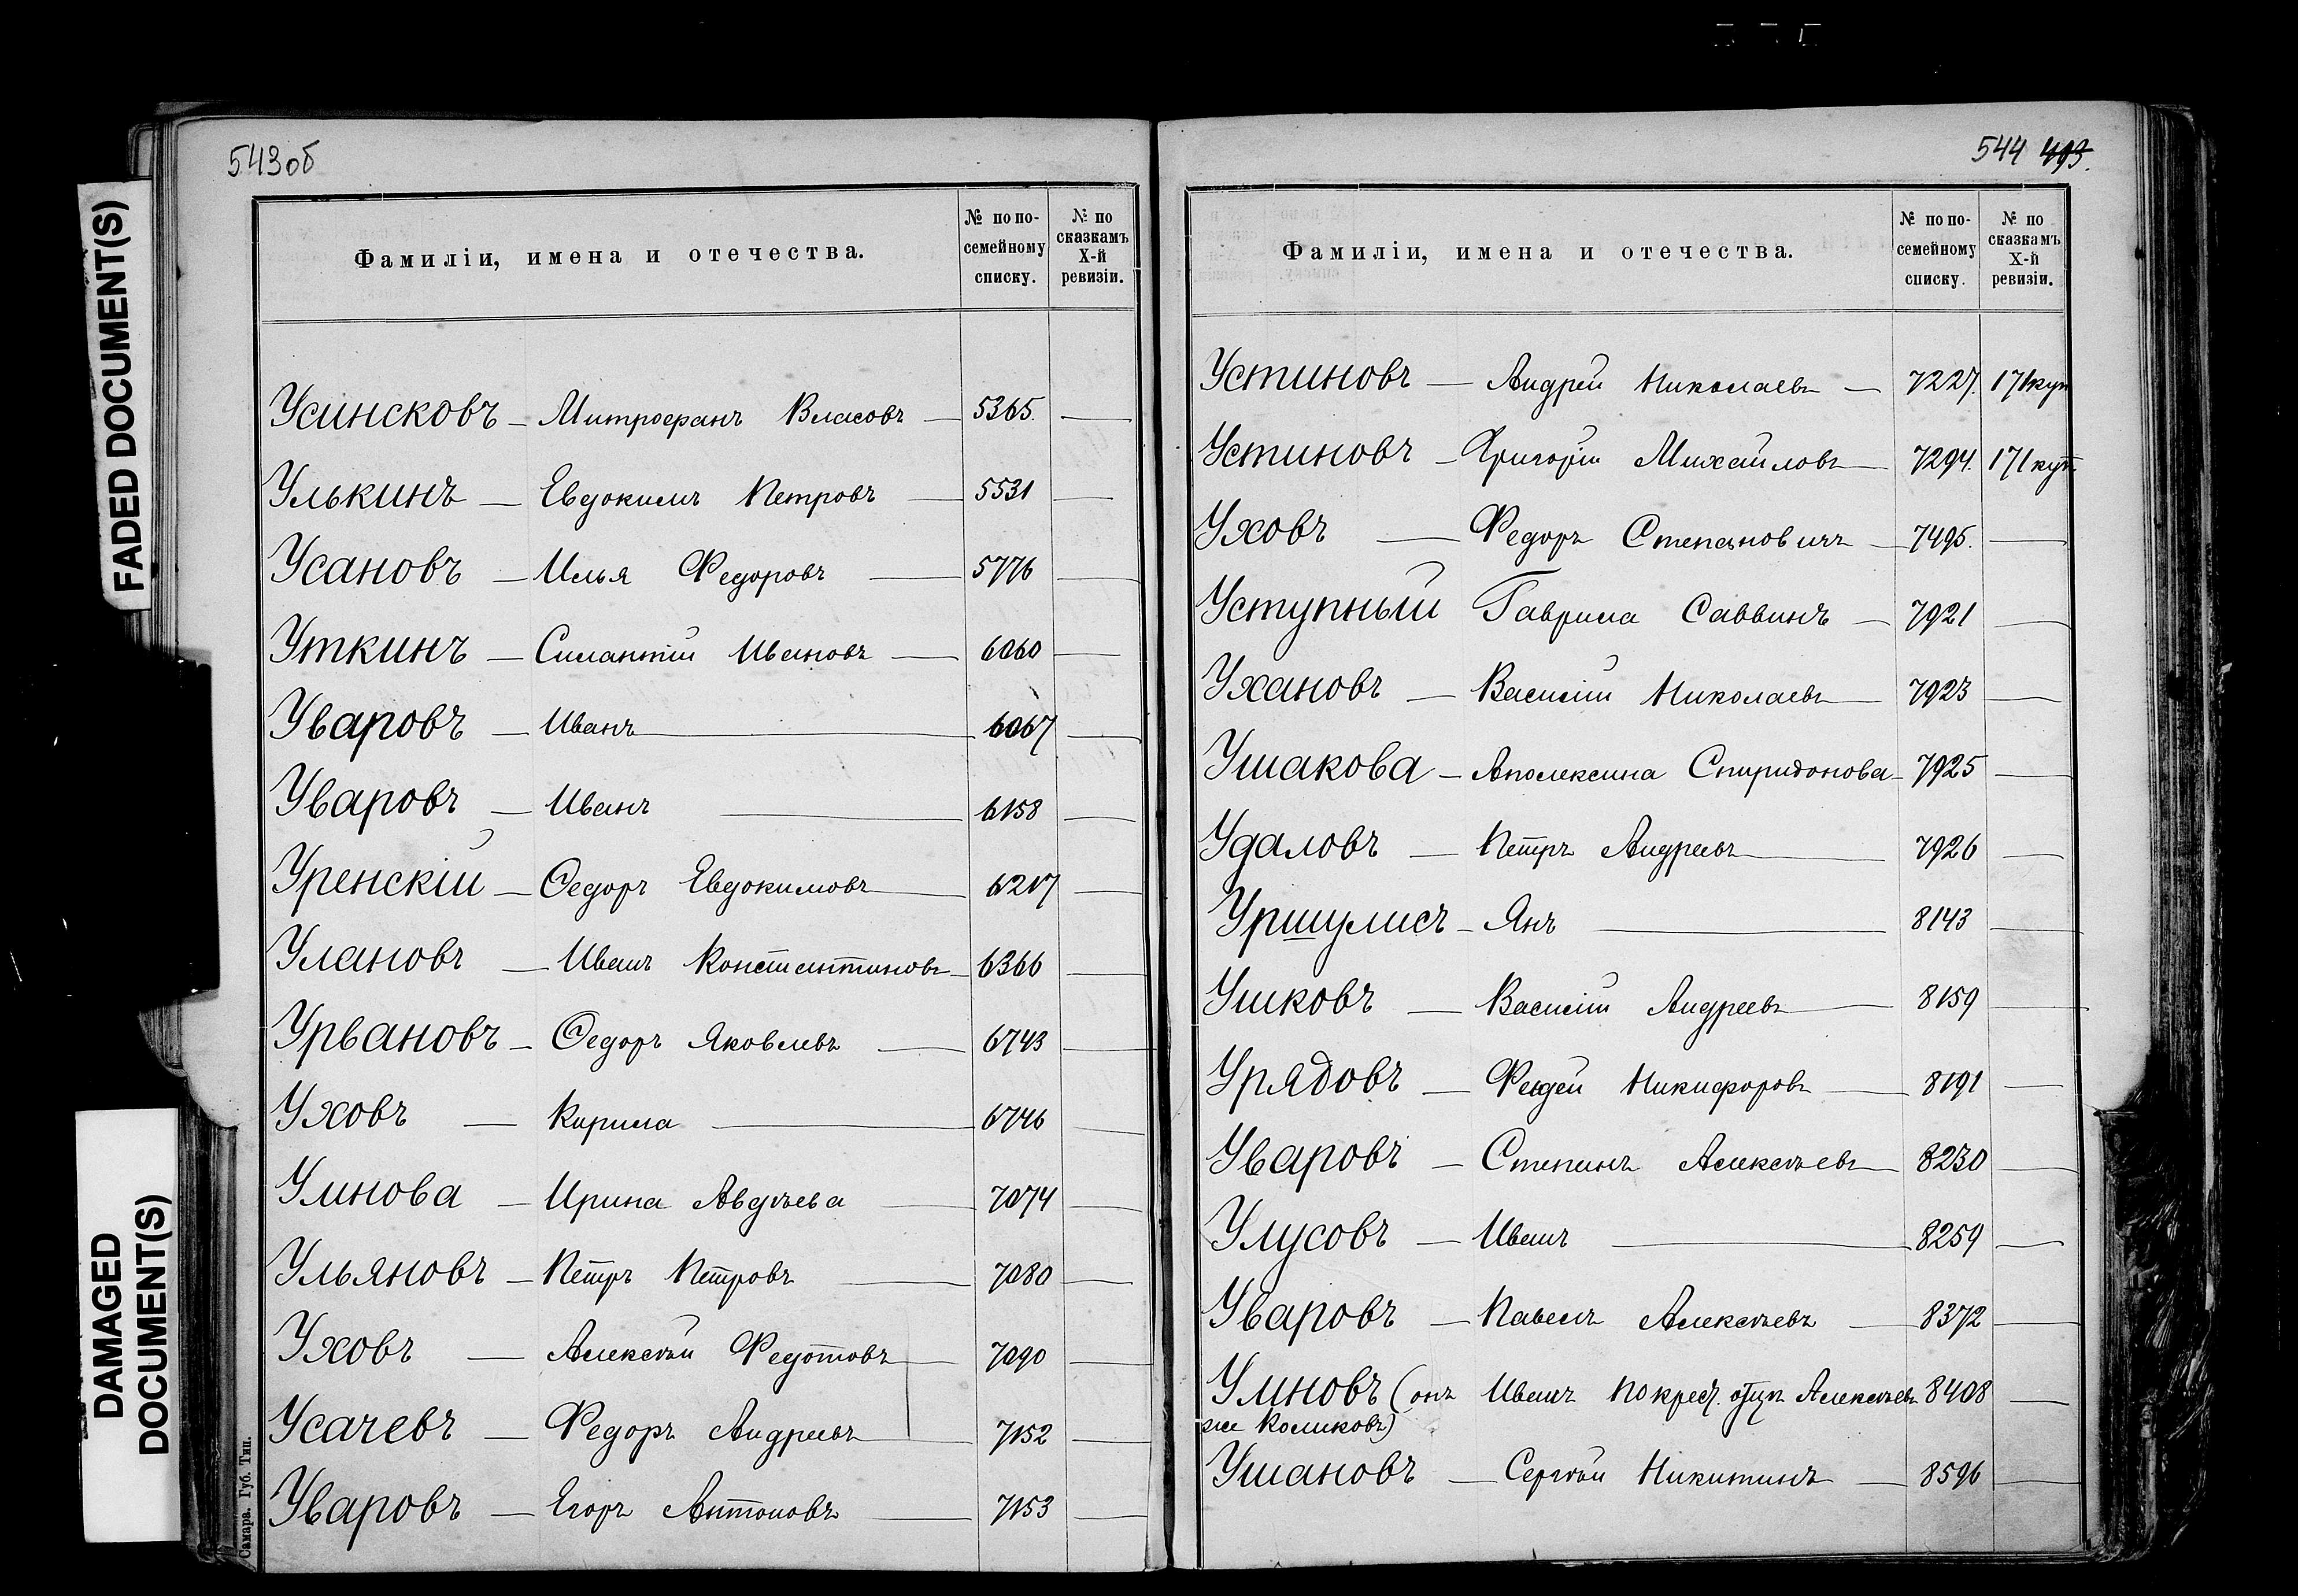 543об
Фамиліи, имена и отечества.
№ по по-
семейному
списку.
№ по
сказкамъ
X-й
ревизіи.
Усинсковъ — Митрофанъ Власовъ — 5365. —
Улькинъ — Евдокимъ Петровъ — 5531 —
Усановъ — Илья Федоровъ — 5776 —
Уткинъ — Силантій Ивановъ — 6060 —
Уваровъ — Иванъ — 6067 —
Уваровъ — Иванъ — 6158 —
Уренскій — Ѳедоръ Евдокимовъ — 6217 —
Улановъ — Иванъ Константиновъ — 6366 —
Урвановъ — Ѳедоръ Яковлевъ — 6743 —
Уховъ — Кирила — 6746 —
Умнова — Ирина Авдѣева — 7074 —
Ульяновъ — Петръ Петровъ — 7080 —
Уховъ — Алексѣй Федотовъ — 7090 —
Усачевъ — Федоръ Андреевъ — 7152 —
Уваровъ — Егоръ Антоновъ — 7153 —
Самара. Губ. Тип.
FADED DOCUMENT(S)
DAMAGED
DOCUMENT(S)
544 493.
Фамиліи, имена и отечества.
№ по по-
семейному
списку.
№ по
сказкамъ
X-й
ревизіи.
Устиновъ — Андрей Николаевъ — 7227. 171 куп
Устиновъ — Григорій Михайловъ — 7294. 171 куп
Уховъ — Федоръ Степановичъ — 7495. —
Уступный Гаврила Саввинъ — 7921 —
Ухановъ — Василій Николаевъ — 7923 —
Ушакова — Аполексина Спиридонова — 7925 —
Удаловъ — Петръ Андреевъ — 7926 —
Уршулисъ — Янъ — 8143 —
Ушковъ — Василій Андреевъ — 8159 —
Урядовъ — Никифоровъ — 8191 —
Уваровъ — Степанъ Алексѣевъ — 8230 —
Улусовъ — Иванъ — 8259 —
Уваровъ — Павелъ Алексѣевъ — 8372 —
Умновъ (онъ Иванъ по крест. отцу Алексѣевъ 8408 —
же Коликовъ)
Ушановъ — Сергѣй Никитинъ — 8596 —